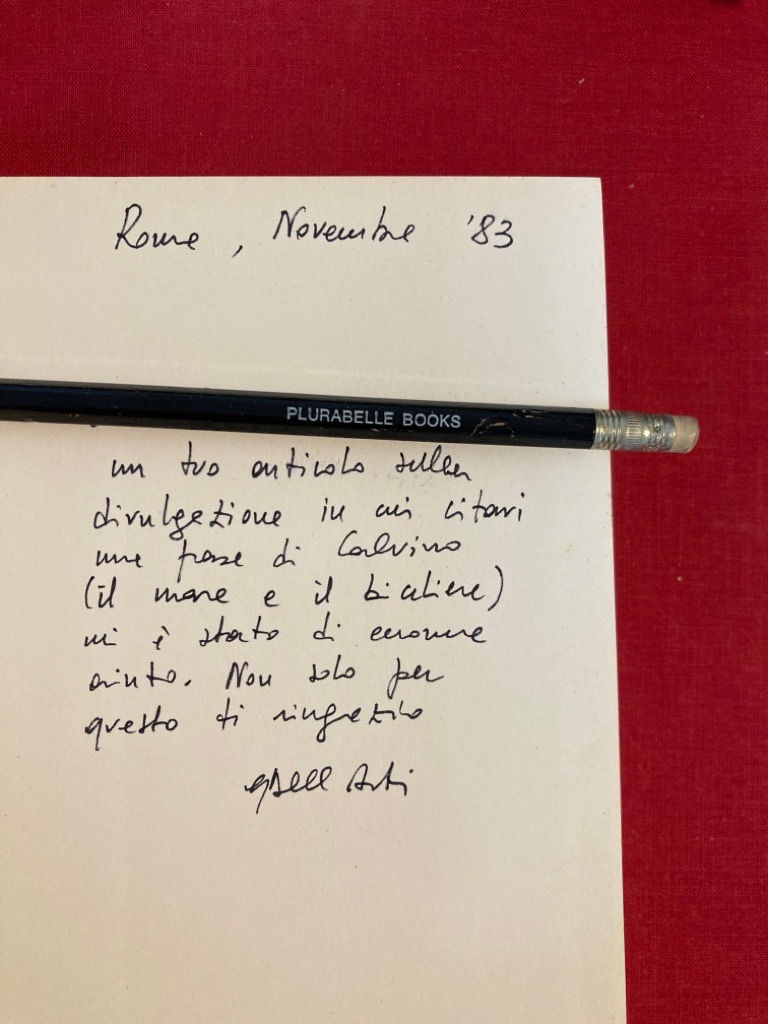 Roma, Novembre '83
PLURABELLE BOOKS
un tuo articolo sulla
divulgazione in cui citavi
una frase di Calvino
(il mare e il bicchiere)
mi è stato di enorme
aiuto. Non solo per
questo ti ringrazio